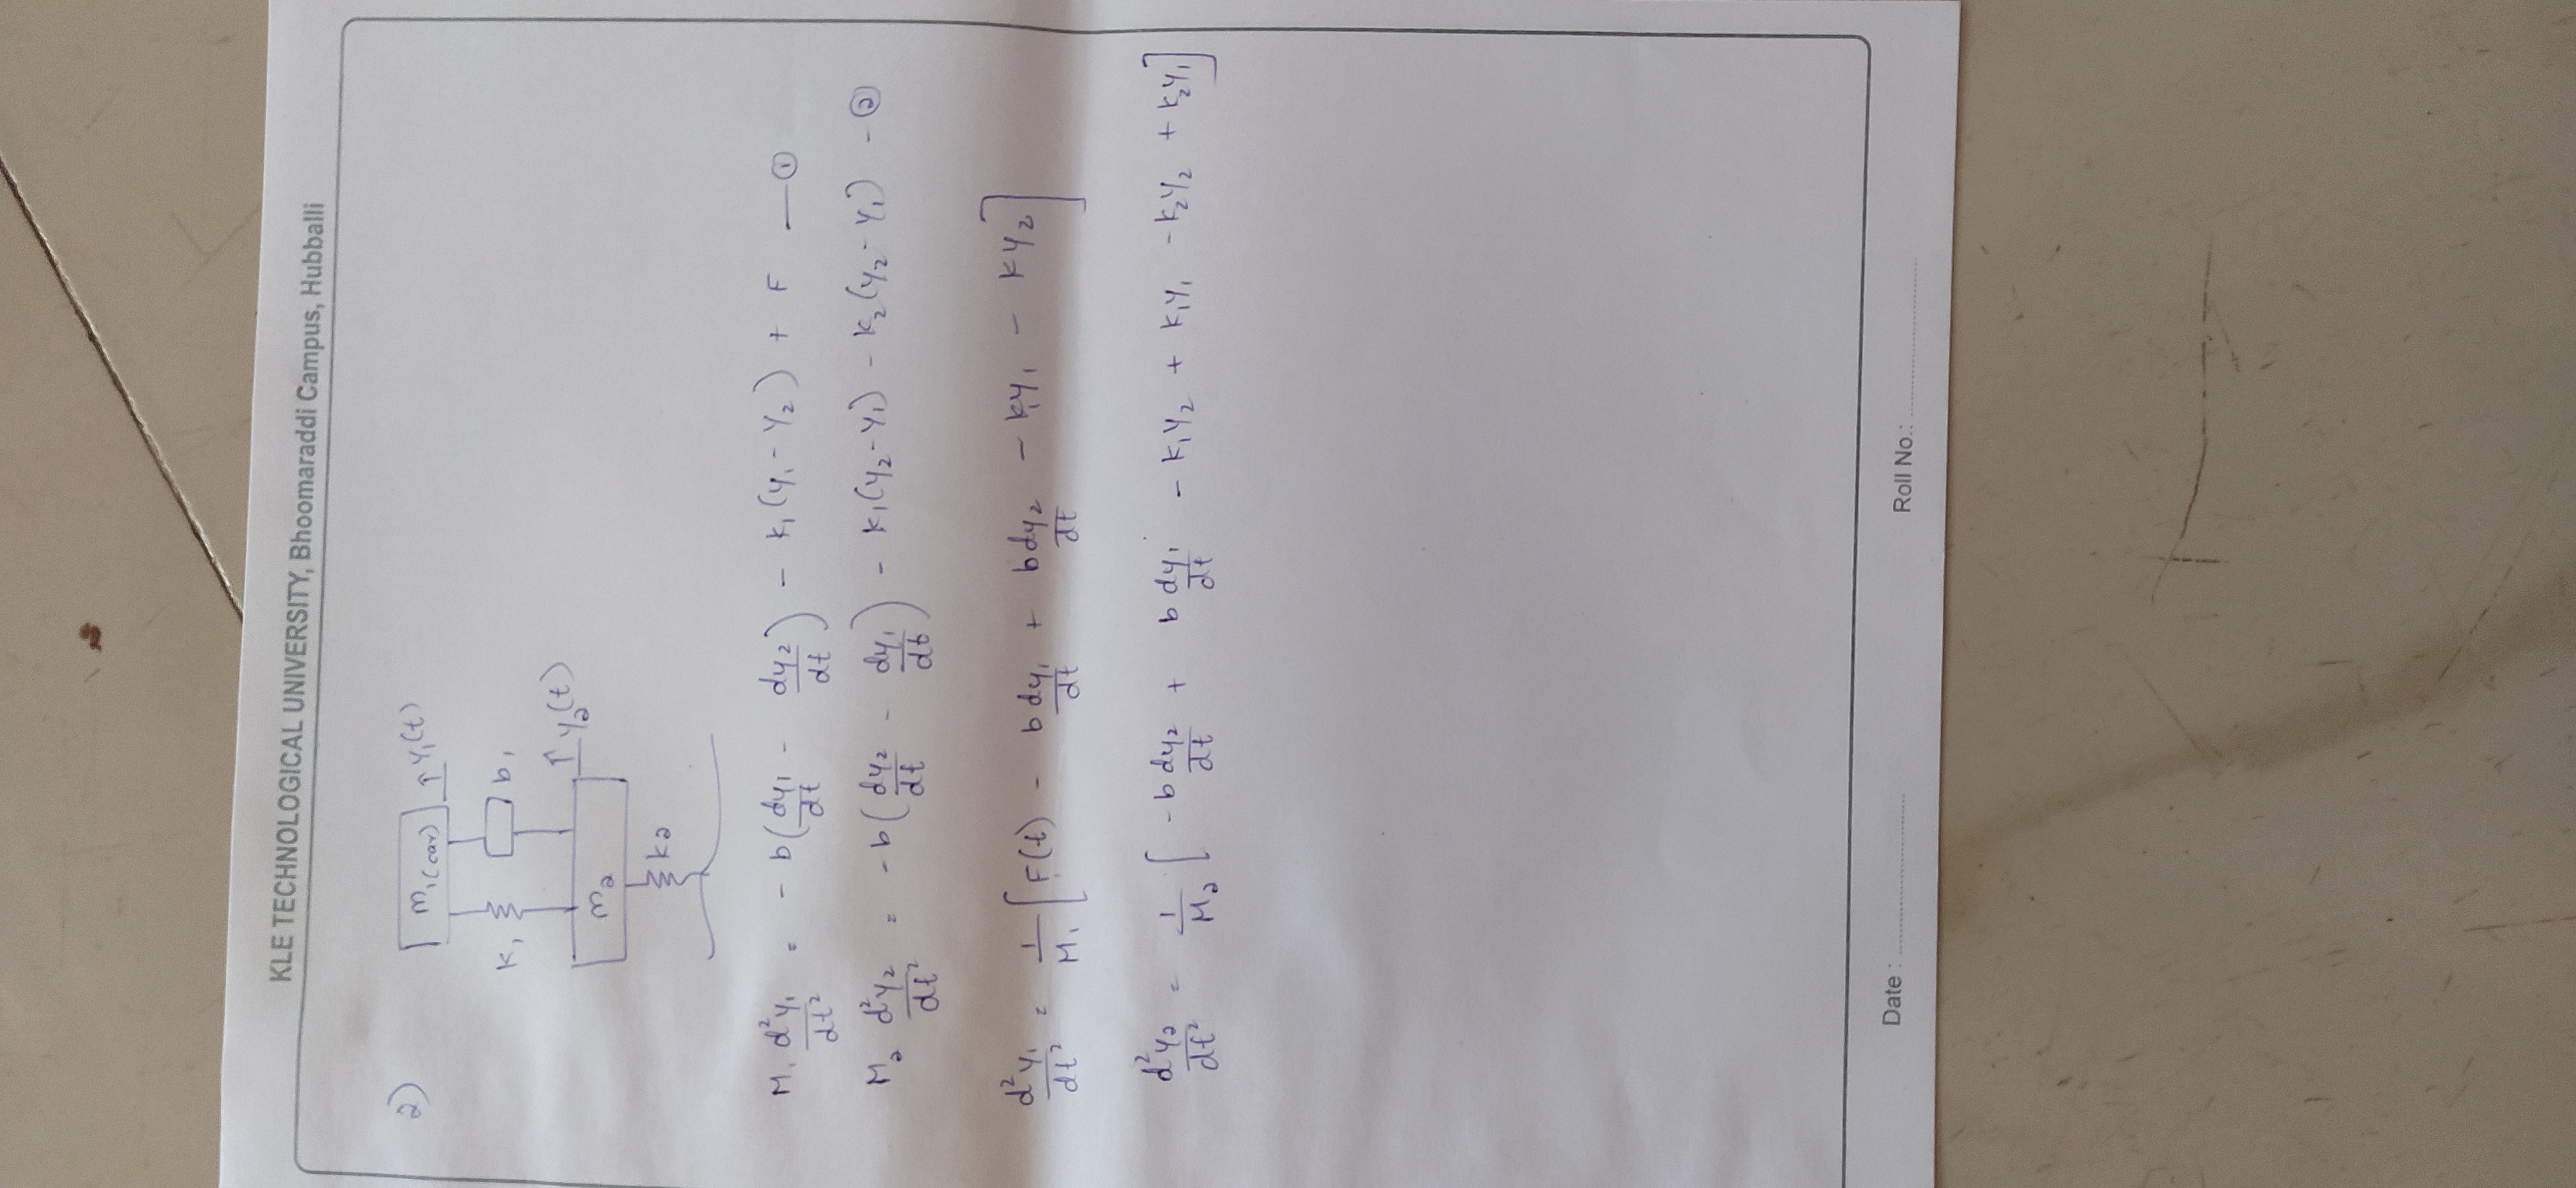 KLE TECHNOLOGICAL UNIVERSITY, Bhoomaraddi Campus, Hubballi
2)
m₁(car) ↑ y₁(t)
K₁ b₁
m₂ ↑ y₂(t)
k₂
M₁ d²y₁/dt² = - b(dy₁/dt - dy₂/dt) - k₁(y₁ - y₂) + F — ①
M₂ d²y₂/dt² = - b(dy₂/dt - dy₁/dt) - k₁(y₂ - y₁) - k₂(y₂ - y₁) - ②
d²y₁/dt² = 1/M₁ [F(t) - b dy₁/dt + b dy₂/dt - k₁y₁ - ky₂]
d²y₂/dt² = 1/M₂ [- b dy₂/dt + b dy₁/dt - k₁y₂ + k₁y₁ - k₂y₂ + k₂y₁]
Date : Roll No.: